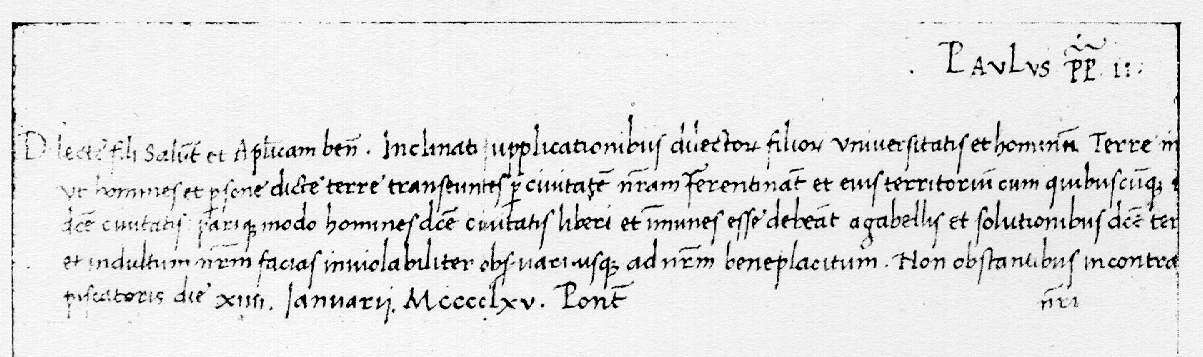 PAULUS PP. II.
Dilecte fili Salut et Aplicam ben. Inclinati supplicationibus dilector filior universitatis et hominu Terre in
ut homines et psone dicte terre transeuntes p civitate nram Ferentinat et eius territoriu cum quibuscuq
dce civitatis pariq modo homines dce civitatis liberi et imunes esse debeat a gabellis et solutionibus dce ter
et indultum nrm facias inviolabiliter observari usq ad nrm beneplacitum. Non obstantibus in contra
piscatoris die xiiii. Ianuarii. Mcccclxv. Pont nri